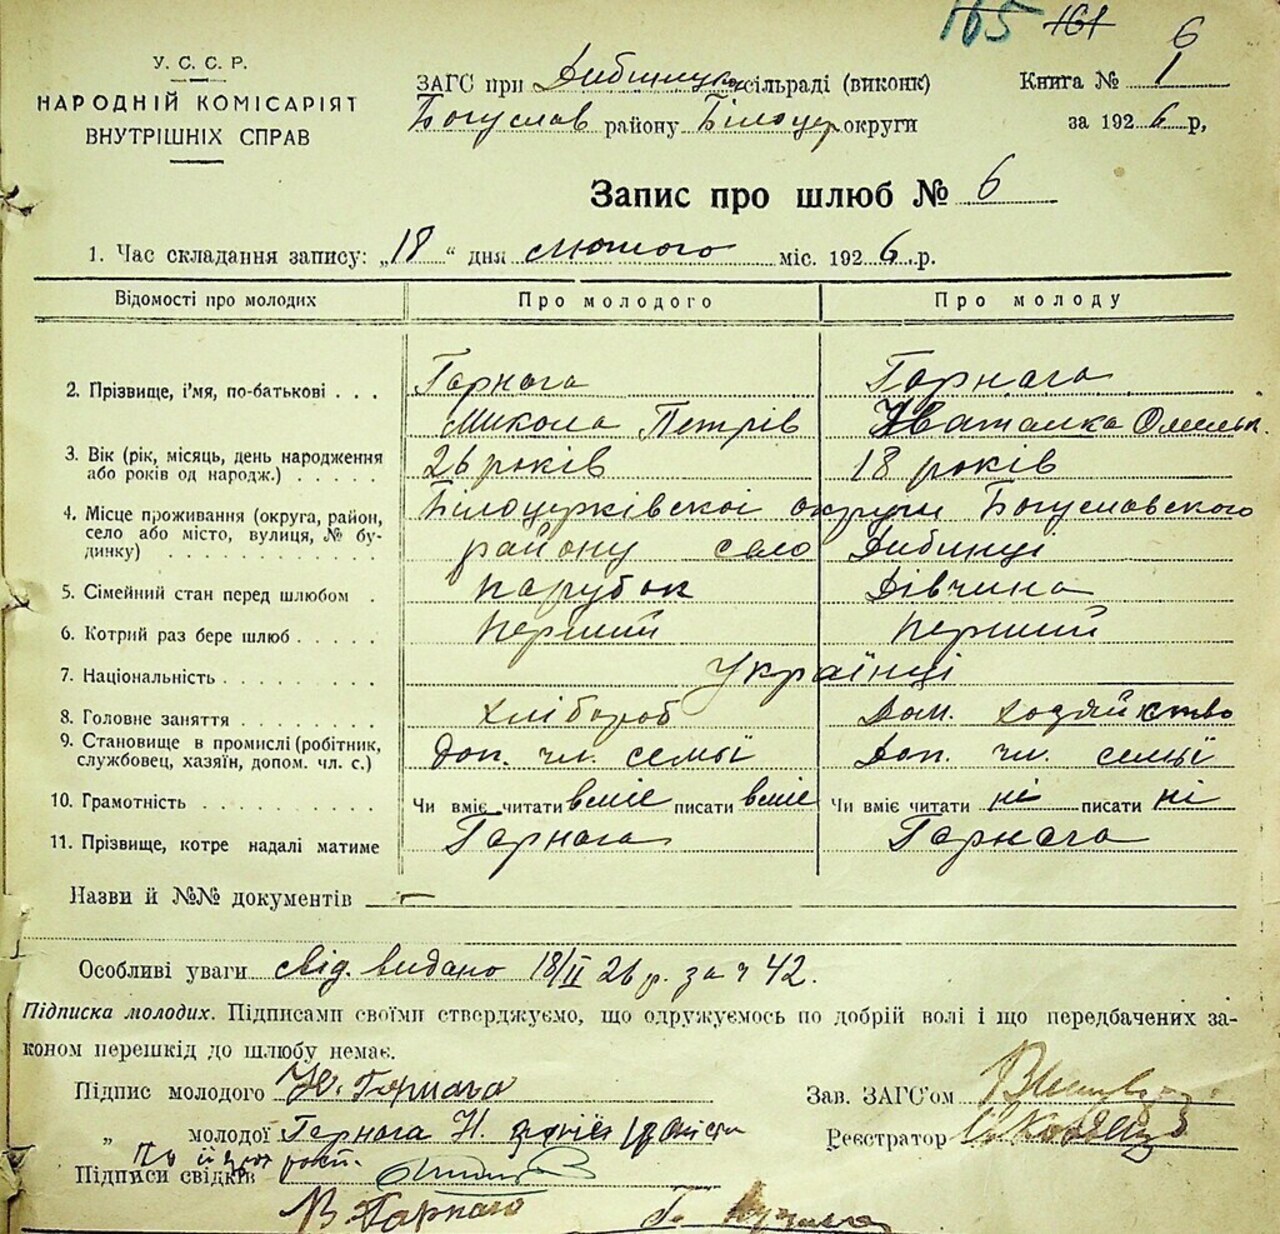 165 161 6
У. С. С. Р.
НАРОДНІЙ КОМІСАРІЯТ
ВНУТРІШНІХ СПРАВ
ЗАГС при Дибинцях сільраді (виконк)
Богуслав району Білоцер округи
Книга № 1
за 1926 р,
Запис про шлюб № 6
1. Час складання запису: „18“ дня лютого міс. 1926 р.
Відомості про молодих Про молодого Про молоду
2. Прізвище, і'мя, по-батькові . . . Гарнага Гарнага
Микола Петрів Наталка Омельк.
3. Вік (рік, місяць, день народження або років од народж.) . . . . . 26 років 18 років
4. Місце проживання (округа, район, село або місто, вулиця, № будинку) . . . . . . . . . . . Білоцерківскоі округи Богуславского
району село Дибинці
5. Сімейний стан перед шлюбом . парубок Дівчина
6. Котрий раз бере шлюб . . . . . перший перший
7. Національність . . . . . . . . Українці
8. Головне заняття . . . . . . . . хлібороб Дом. хозяйство
9. Становище в промислі (робітник, службовец, хазяїн, допом. чл. с.) Доп. чл. семьї Доп. чл. семьї
10. Грамотність . . . . . . . . . . Чи вміє читати вміє писати вміє Чи вміє читати ні писати ні
11. Прізвище, котре надалі матиме Гарнага Гарнага
Назви й №№ документів —
Особливі уваги свід. видано 18/II 26 р. за ч 42.
Підписка молодих. Підписами своїми стверджуємо, що одружуємось по добрій волі і що передбачених за-
коном перешкід до шлюбу немає.
Підпис молодого М. Гарнага
Зав. ЗАГС'ом
„ молодої Гарнага Н.
Реєстратор
По її
Підписи свідків
В. Гарнага Г.